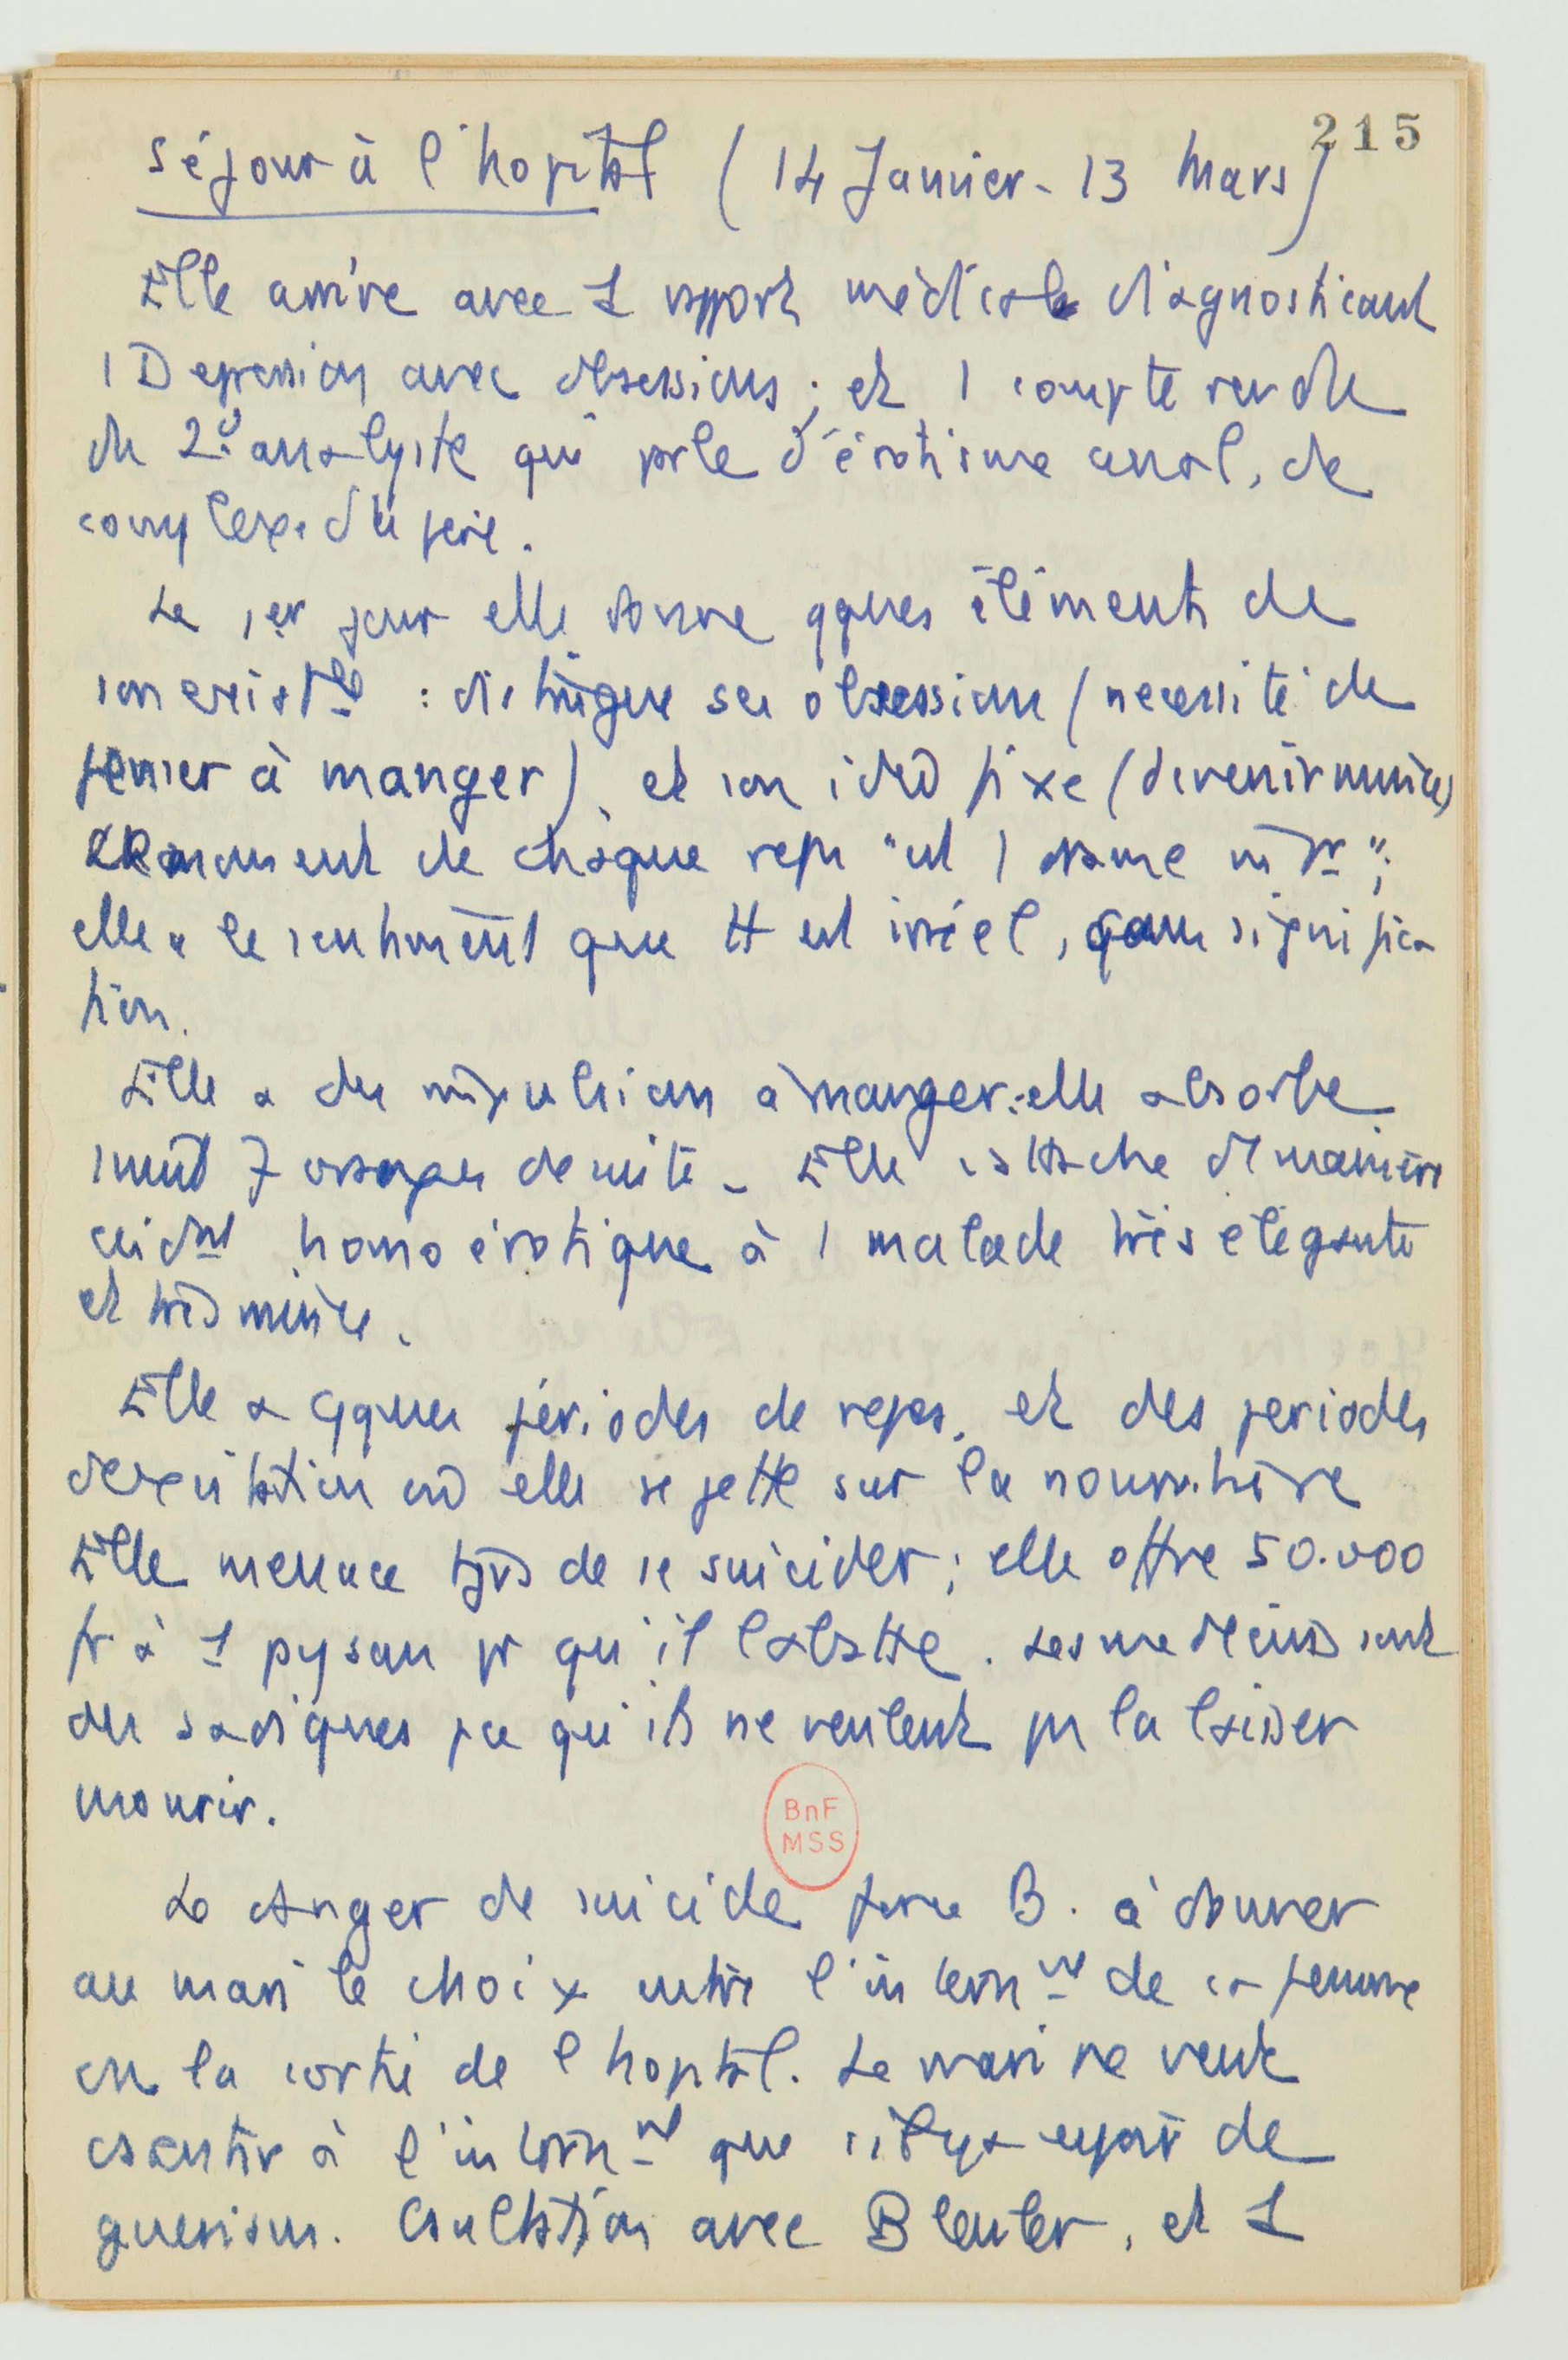 215
Séjour à l'hopital (14 Janvier - 13 Mars)
Elle arrive avec 1 rapport médical diagnosticant
1 Depression avec obsessions ; et 1 compte rendu
du 2e analyste qui parle d'érotisme anal, de
complexe du père.
Le 1er jour elle donne qques éléments de
son exist : distingue ses obsessions (necessité de
penser à manger) et son idée fixe (devenir mince)
Le moment de chaque repas "est 1 drame intr" ;
elle a le sentiment que tt est irréel, sans significa
tion.
Elle a des impulsions à manger : elle absorbe
7 oranges de suite - Elle s'attache de manière
homo érotique à 1 malade très élégante
et très mince.
Elle a qques périodes de repos, et des periodes
d'excitation où elle se jette sur la nourriture
Elle menace tjrs de se suicider ; elle offre 50.000
fr à 1 paysan pr qu'il l'abatte. Les medecins sont
des sadiques pce qu'ils ne veulent pas la laisser
mourir.
Le danger de suicide force B. à donner
au mari le choix entre l'internt de sa femme
ou la sortie de l'hopital. Le mari ne veut
csentir à l'internt que s'il y a espoir de
guerison. Csultation avec Bleuler, et 1
BnF
MSS